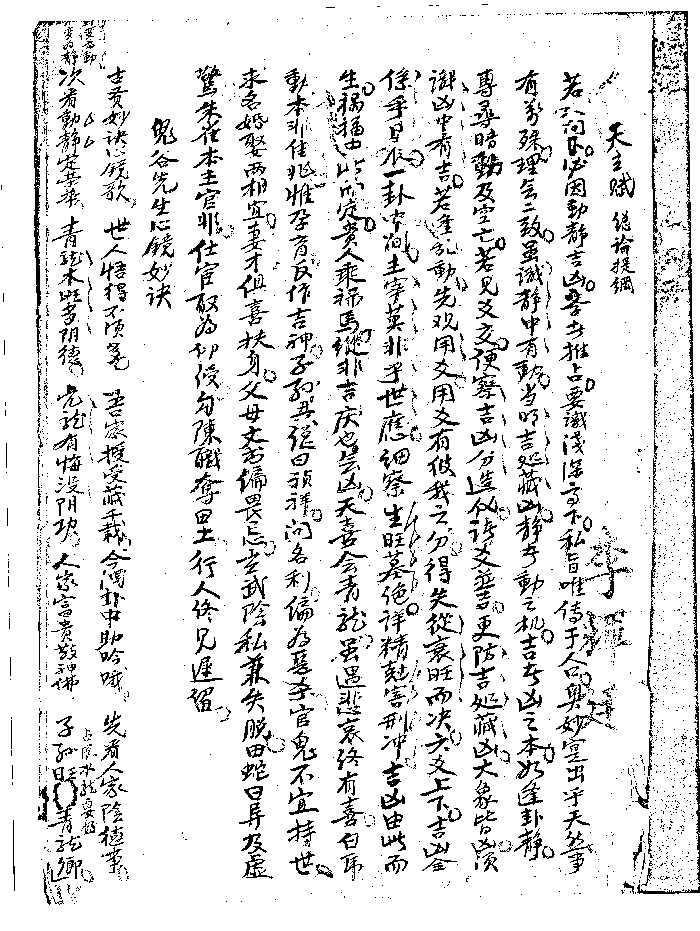 天玄賦 總論提綱
若問卜必因動靜吉凶要去推占要識淺深高下私旨唯傳于人奧妙寔出乎天然事
有萬殊理無二致虽識靜中有動当明吉处藏凶静者動之机吉者凶之本如逢卦靜
專尋暗動及空亡若見爻交便察吉凶分造化諸爻並吉更防吉处藏凶大象皆凶須
識凶中有吉若逢乱動先观用爻用爻有彼我之分得失從衰旺而决六爻上下吉凶全
係乎日辰一卦中间主宰莫非乎世應細察生旺墓绝詳精尅害刑冲吉凶由此而
生禍福由此而定貴人乘禄馬縱非吉庆也無凶天喜会青龙虽遇悲哀終有喜白虎
動本非佳兆惟孕育反作吉神子孙興總曰禎祥问名利偏為惡杀官鬼不宜持世
求名婚娶两相宜妻才但喜扶身父母文书偏畏忌玄武陰私兼失脱螣蛇曰异及虚
驚朱雀本主官非仕宦取為印綬勾陳職奪田土行人终見遲留
鬼谷先生心镜妙诀
吉贡妙訣心镜歌 世人悟得不须多 吾家授受藏千載 今阅卦中助吟哦 先看人家陰德事
次看動靜定榮華 青龙木旺多阴德 虎蛇有悔没阴功 人家富貴敬神佛 子孙旺 青龙鄉